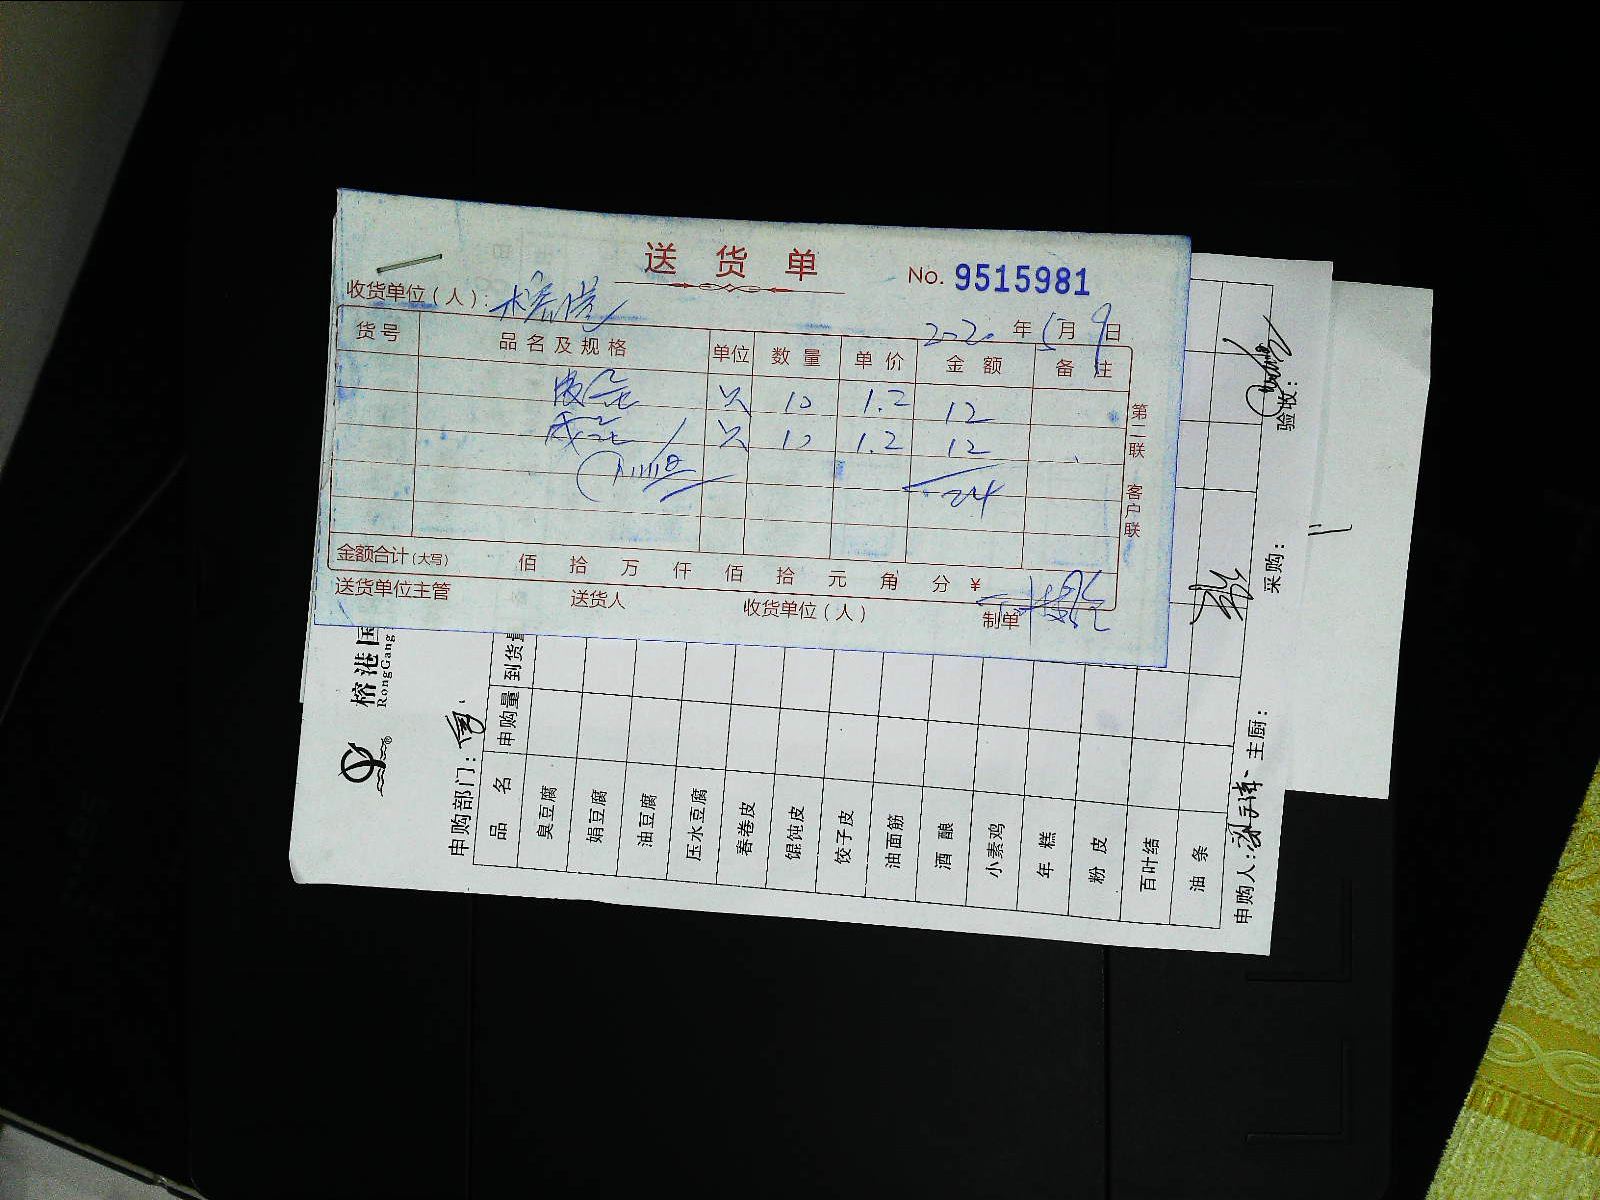 送货单
No. 9515981
收货单位（人）：榕港
2020年5月9日
货号 品名及规格 单位 数量 单价 金额 备注
只 10 1.2 12
只 10 1.2 12
24
第二联 客户联
金额合计(大写) 佰 拾 万 仟 佰 拾 元 角 分 ¥
送货单位主管 送货人 收货单位（人） 制单
榕港国
RongGang
申购部门：
品名 申购量 到货量
臭豆腐
娟豆腐
油豆腐
压水豆腐
春卷皮
馄饨皮
饺子皮
油面筋
酒酿
小素鸡
年糕
粉皮
百叶结
油条
申购人： 主厨： 采购： 验收：